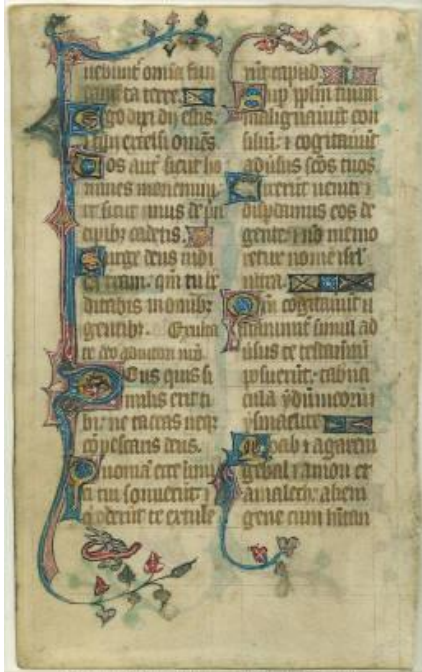 uebunt omīa fun
damta terre.
Ego dixi dii estis.
et filii excelsi omēs
Uos aut̄ sicut ho
mines moriemini.
et sicut unus de pri
cipibꝫ cadetis.
Surge deus iudi
ca terram. qm̄ tu he
ditabis in omībꝫ
gentibꝫ. Exulta
te deo adiutori nr̄o
Deus quis si
milis erit ti
bi: ne taceas neqꝫ
cōpescaris deus.
Quoniā ecce inimi
ci tui sonuerūt ⁊
q̄ oderūt te extule
rūt capud.
Sup pplm̄ tuum
malignauerūt con
siliū: ⁊ cogitauerūt
adūsus scōs tuos
Dixerūt uenite ⁊
disp̄damus eos de
gente: ⁊ nō memo
retur nomē isrl̄
ultra.
Qm̄ cogitauerūt u
nanimit̄ simul ad
ūsus te testam̄tū
posuerūt: tab̄na
cula ydumeorū
ysmaelite
Moab ⁊ agareni
gebal ⁊ amon et
amalech: alieni
gene cum hītan